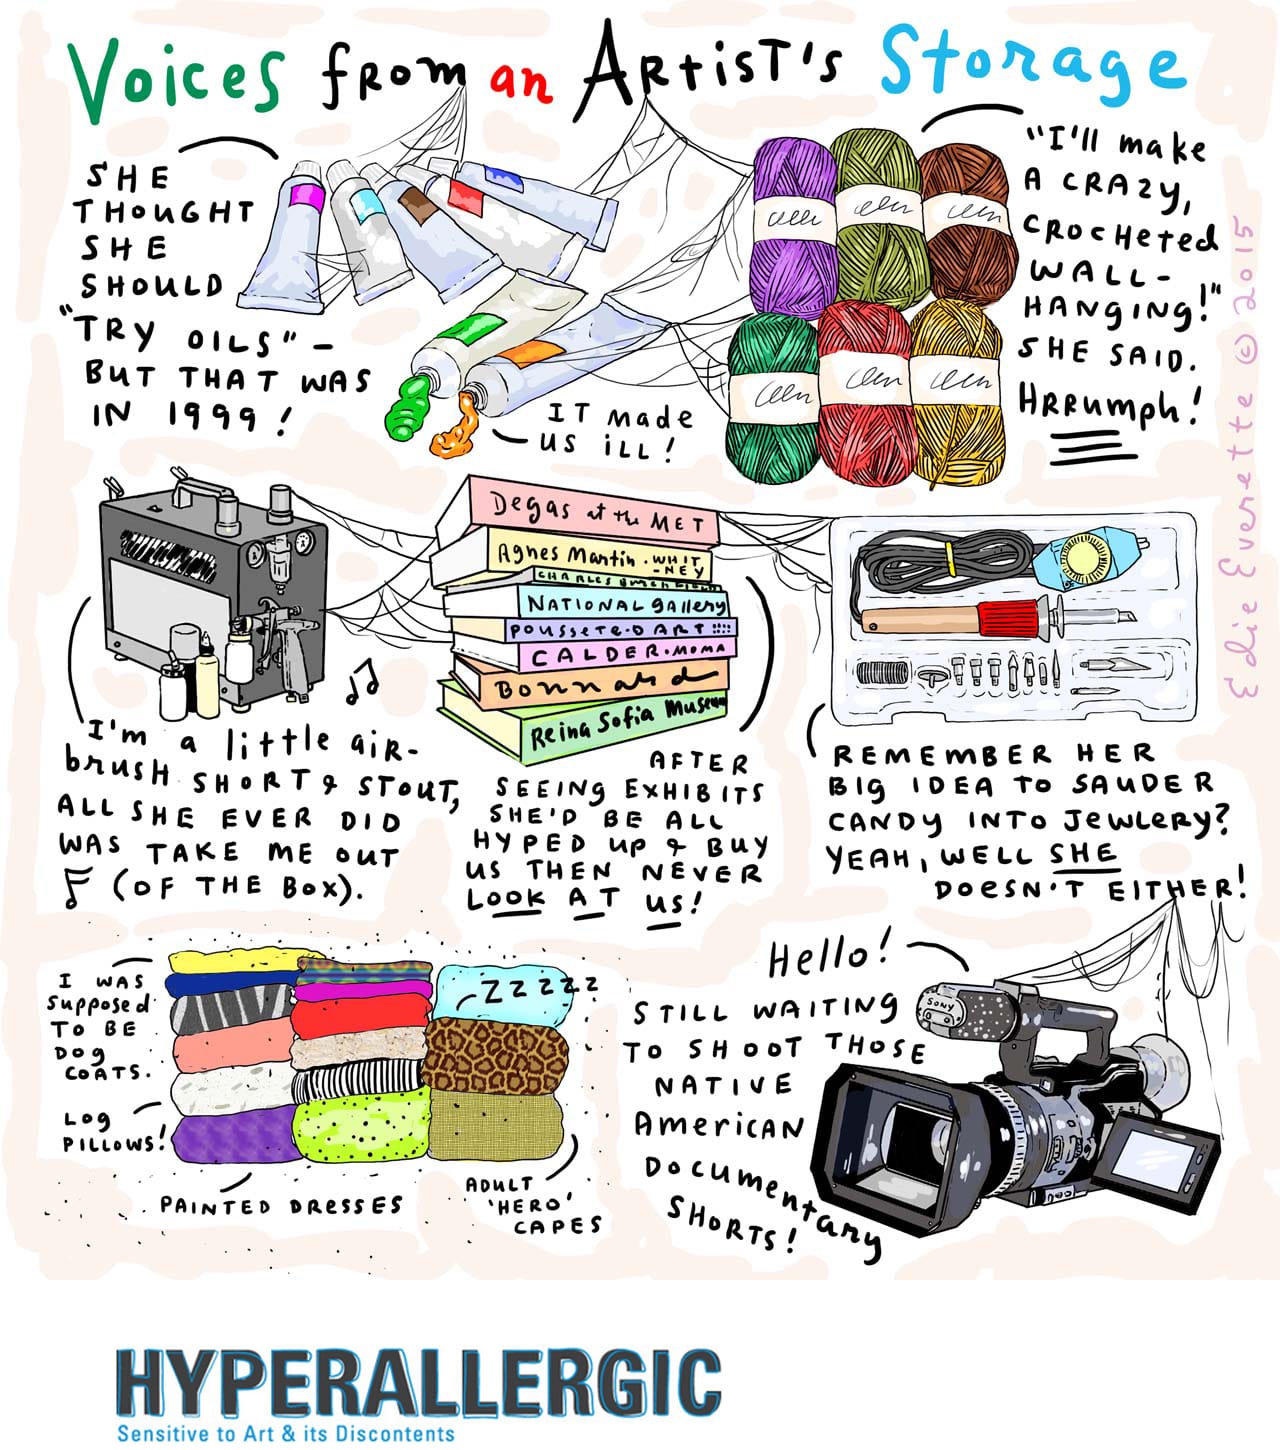 Voices from an Artist's Storage
SHE
THOUGHT
SHE
SHOULD
"TRY OILS" –
BUT THAT WAS
IN 1999!
IT made
US ill!
"I'll make
A CRAZY,
CROCHETED
WALL-
HANGING!"
SHE SAID.
HRRUMPH!
Edie Everette © 2015
I'm a little air-
brush SHORT & STOUT,
ALL SHE EVER DID
WAS TAKE ME OUT
(OF THE BOX).
Degas at the MET
Agnes Martin · WHIT
-NEY
NATIONAL gallery
POUSSETE-D ART
CALDER · MOMA
Bonnard
Reina Sofia Museum
AFTER
SEEING EXHIBITS
SHE'D BE ALL
HYPED UP & BUY
US THEN NEVER
LOOK AT US!
REMEMBER HER
BIG IDEA TO SAUDER
CANDY INTO JEWLERY?
YEAH, WELL SHE
DOESN'T EITHER!
I WAS
Supposed
TO BE
DOG
COATS.
LOG
PILLOWS!
PAINTED DRESSES
ZZZZZZ
ADULT
'HERO'
CAPES
Hello!
STILL WAITING
TO SHOOT THOSE
NATIVE
AMERICAN
DOCUMENTARY
SHORTS!
SONY
HYPERALLERGIC
Sensitive to Art & its Discontents